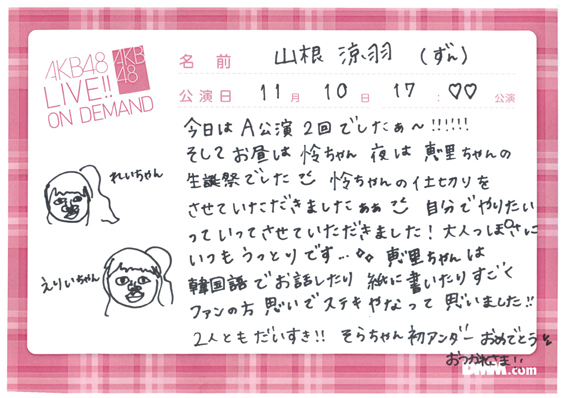 AKB48
LIVE!!
ON DEMAND
AKB
48
名前 山根 涼羽 (ずん)
公演日 11月 10日 17:♡♡公演
今日は A公演 2回 でしたぁ〜!!!!!!
そして お昼は 怜ちゃん 夜は 恵里ちゃんの
生誕祭でした 怜ちゃんの 仕切りを
させていただきましたぁぁ 自分でやりたい
っていってさせていただきました! 大人っぽさに
いつも うっとり です… 恵里ちゃんは
韓国語でお話したり 紙に書いたりすごく
ファンの方 思いでステキやなって 思いました!!
2人ともだいすき!! そらちゃん 初アンダー おめでとう
おつかれさま!!
れいちゃん
えりいちゃん
DMM.com